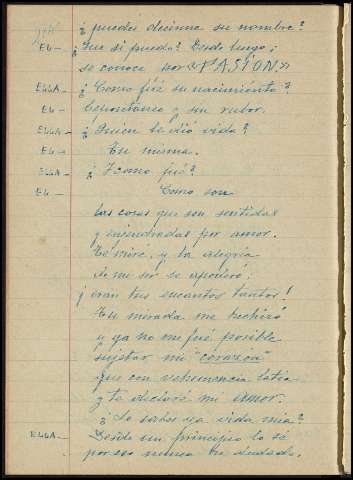 ¿puedes decirme su nombre?
EL- ¿Que si puedo? Desde luego;
se conoce por «PASION.»
ELLA- ¿Como fué su nacimiento?
EL- Espontaneo y sin rubor.
ELLA- ¿Quien le dió vida?
EL- Tu misma.
ELLA- ¿Y como fué?
EL- Como son
las cosas que son sentidas
y engendradas por amor.
Te miré, y la alegria
de mi ser se apoderó.
¡Eran tus encantos tantos!
Tu mirada me hechizó
y ya no me fué posible
sujetar mi "corazon"
que con vehemencia latia
y te declaré mi amor.
¿Lo sabes ya vida mia?
ELLA- Desde un principio lo sé
por eso nunca he dudado.